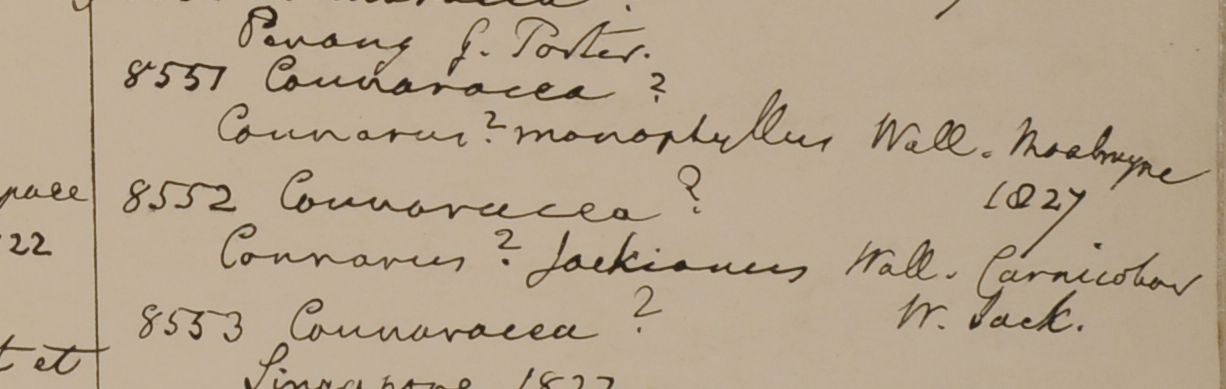 Penang G. Porter.
8551 Connaracea ?
Connarus ? monophyllus Wall. Moalmyne
1827
pace
8552 Connaracea ?
22
Connarus ? Jackianus Wall. Carnicobar
W. Jack.
8553 Connaracea ?
t et
Singapore 1822